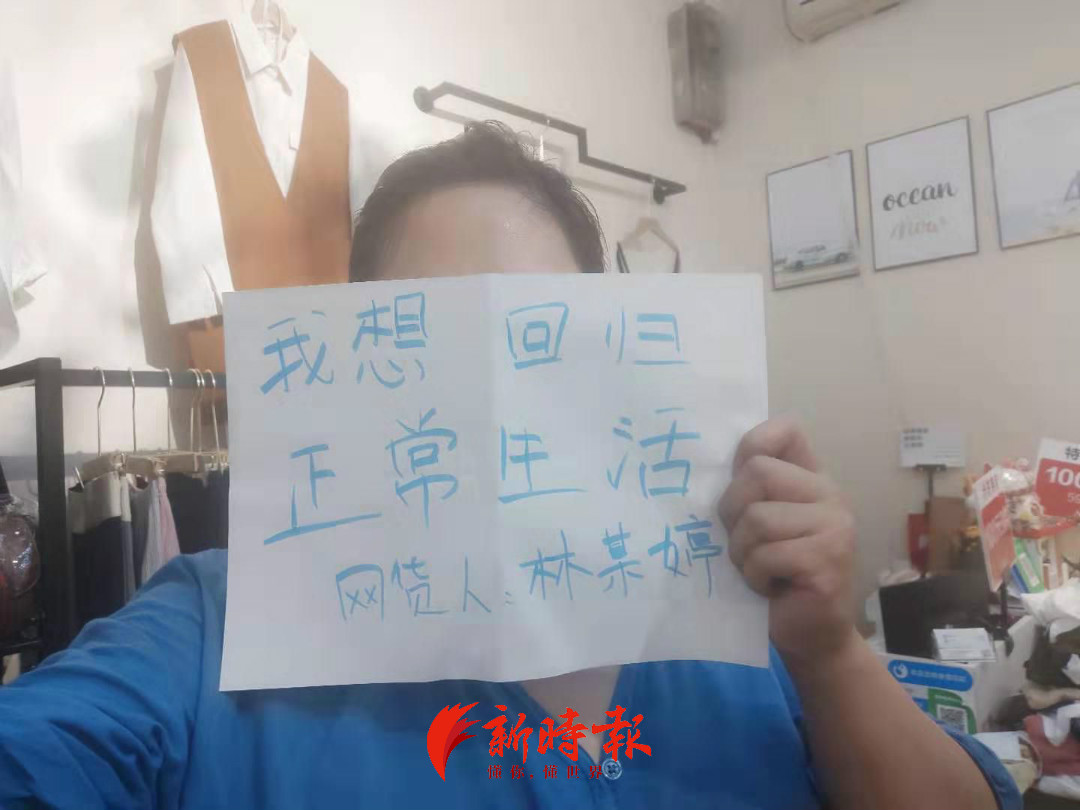 我想回归
正常生活
网货人：林某婷
ocean
新時報
懂你，懂世界
特
100